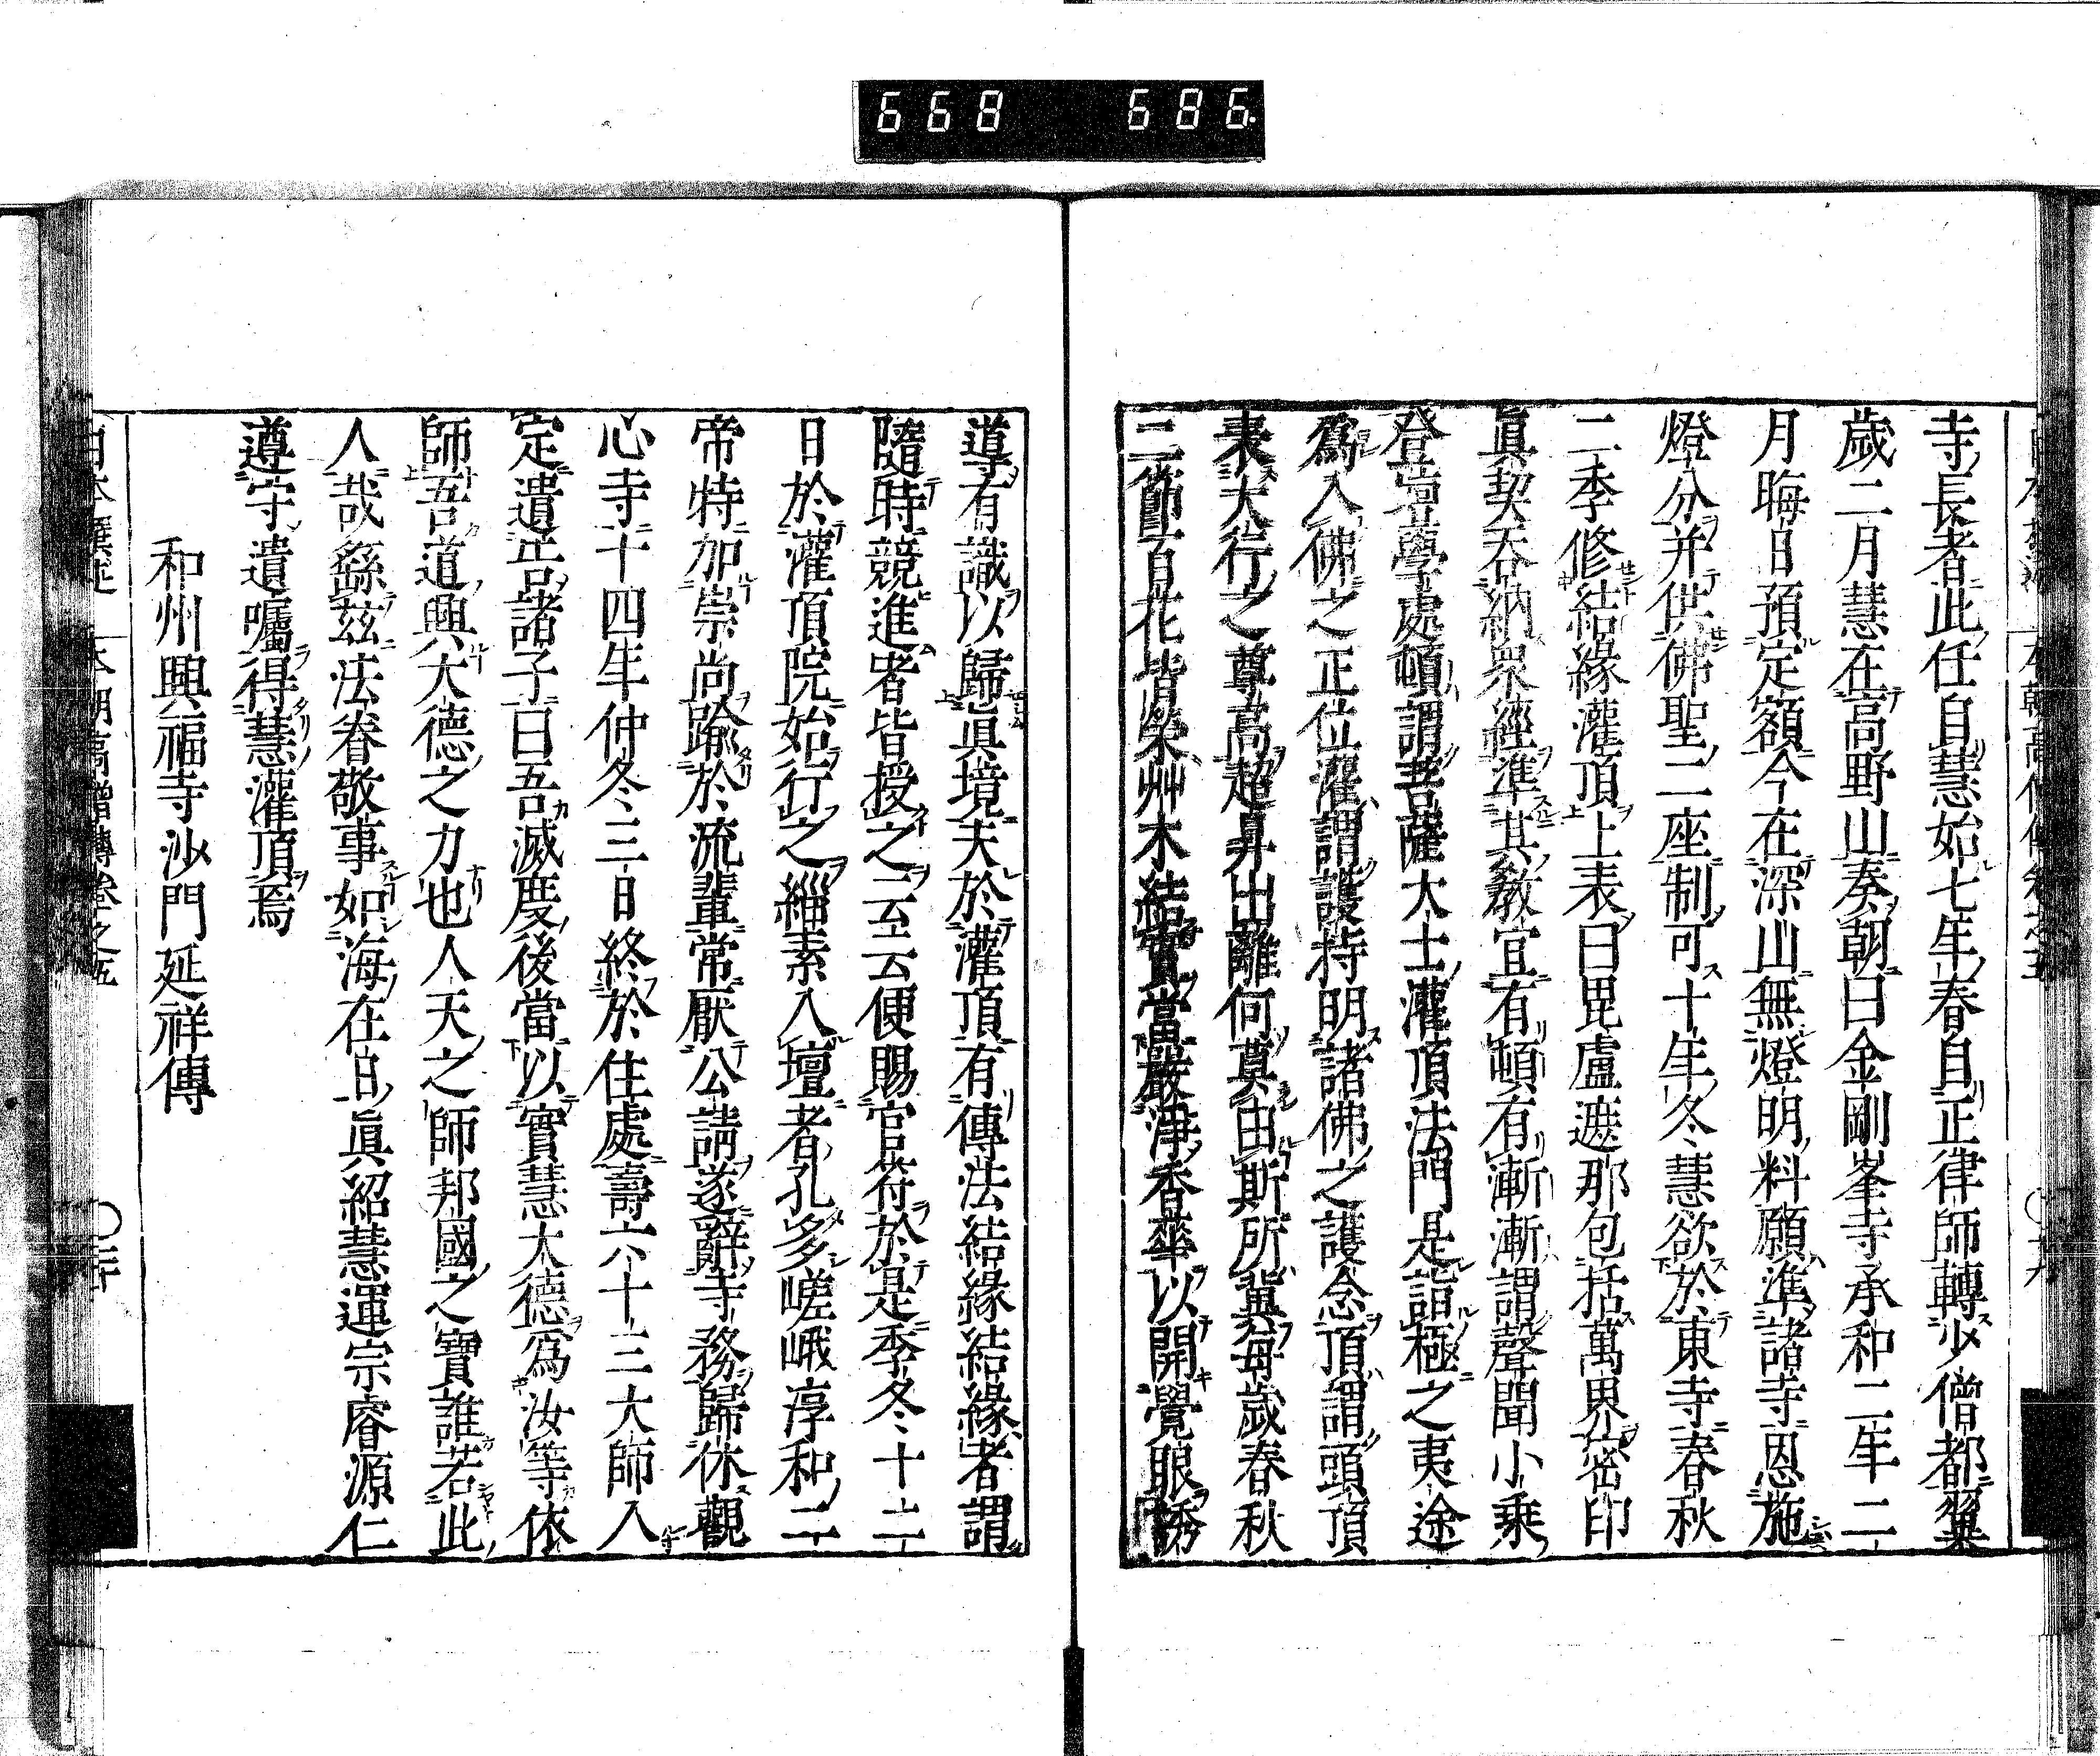 668 686
寺長者此任自慧始七年春自正律師轉少僧都翼
歲二月慧在高野山奏朝曰金剛峯寺承和二年二
月晦日預定額今在深山無燈明料願準諸寺恩施
燈分并供佛聖二座制可十年冬慧欲於東寺春秋
二季修結緣灌頂上表曰毘盧遮那包括萬界密印
眞契吞納衆經準其教宜有頓有漸漸謂聲聞小乘
登壇學處頓謂菩薩大士灌頂法門是詣極之夷途
爲入佛之正位灌謂護持明諸佛之護念頂謂頭頂
表大行之尊高超昇出離何莫由斯所冀每歲春秋
二節百花皆榮艸木結實當嚴淨香華以開覺眼誘
道有識以歸眞境夫於灌頂有傳法結緣結緣者謂
隨時競進者皆授之云云便賜官符於是季冬十二
日於灌頂院始行之緇素入壇者孔多嵯峨淳和二
帝特加崇尚踰於流輩常厭公請遂辭寺務歸休觀
心寺十四年仲冬三日終於住處壽六十三大師入
定遺告諸子曰吾滅度後當以實慧大德爲汝等依
師吾道興大德之力也人天之師邦國之寶誰若此
人哉繇茲法眷敬事如海在日眞紹慧運宗睿源仁
遵守遺囑得慧灌頂焉
和州興福寺沙門延祥傳
本朝高僧傳卷之五